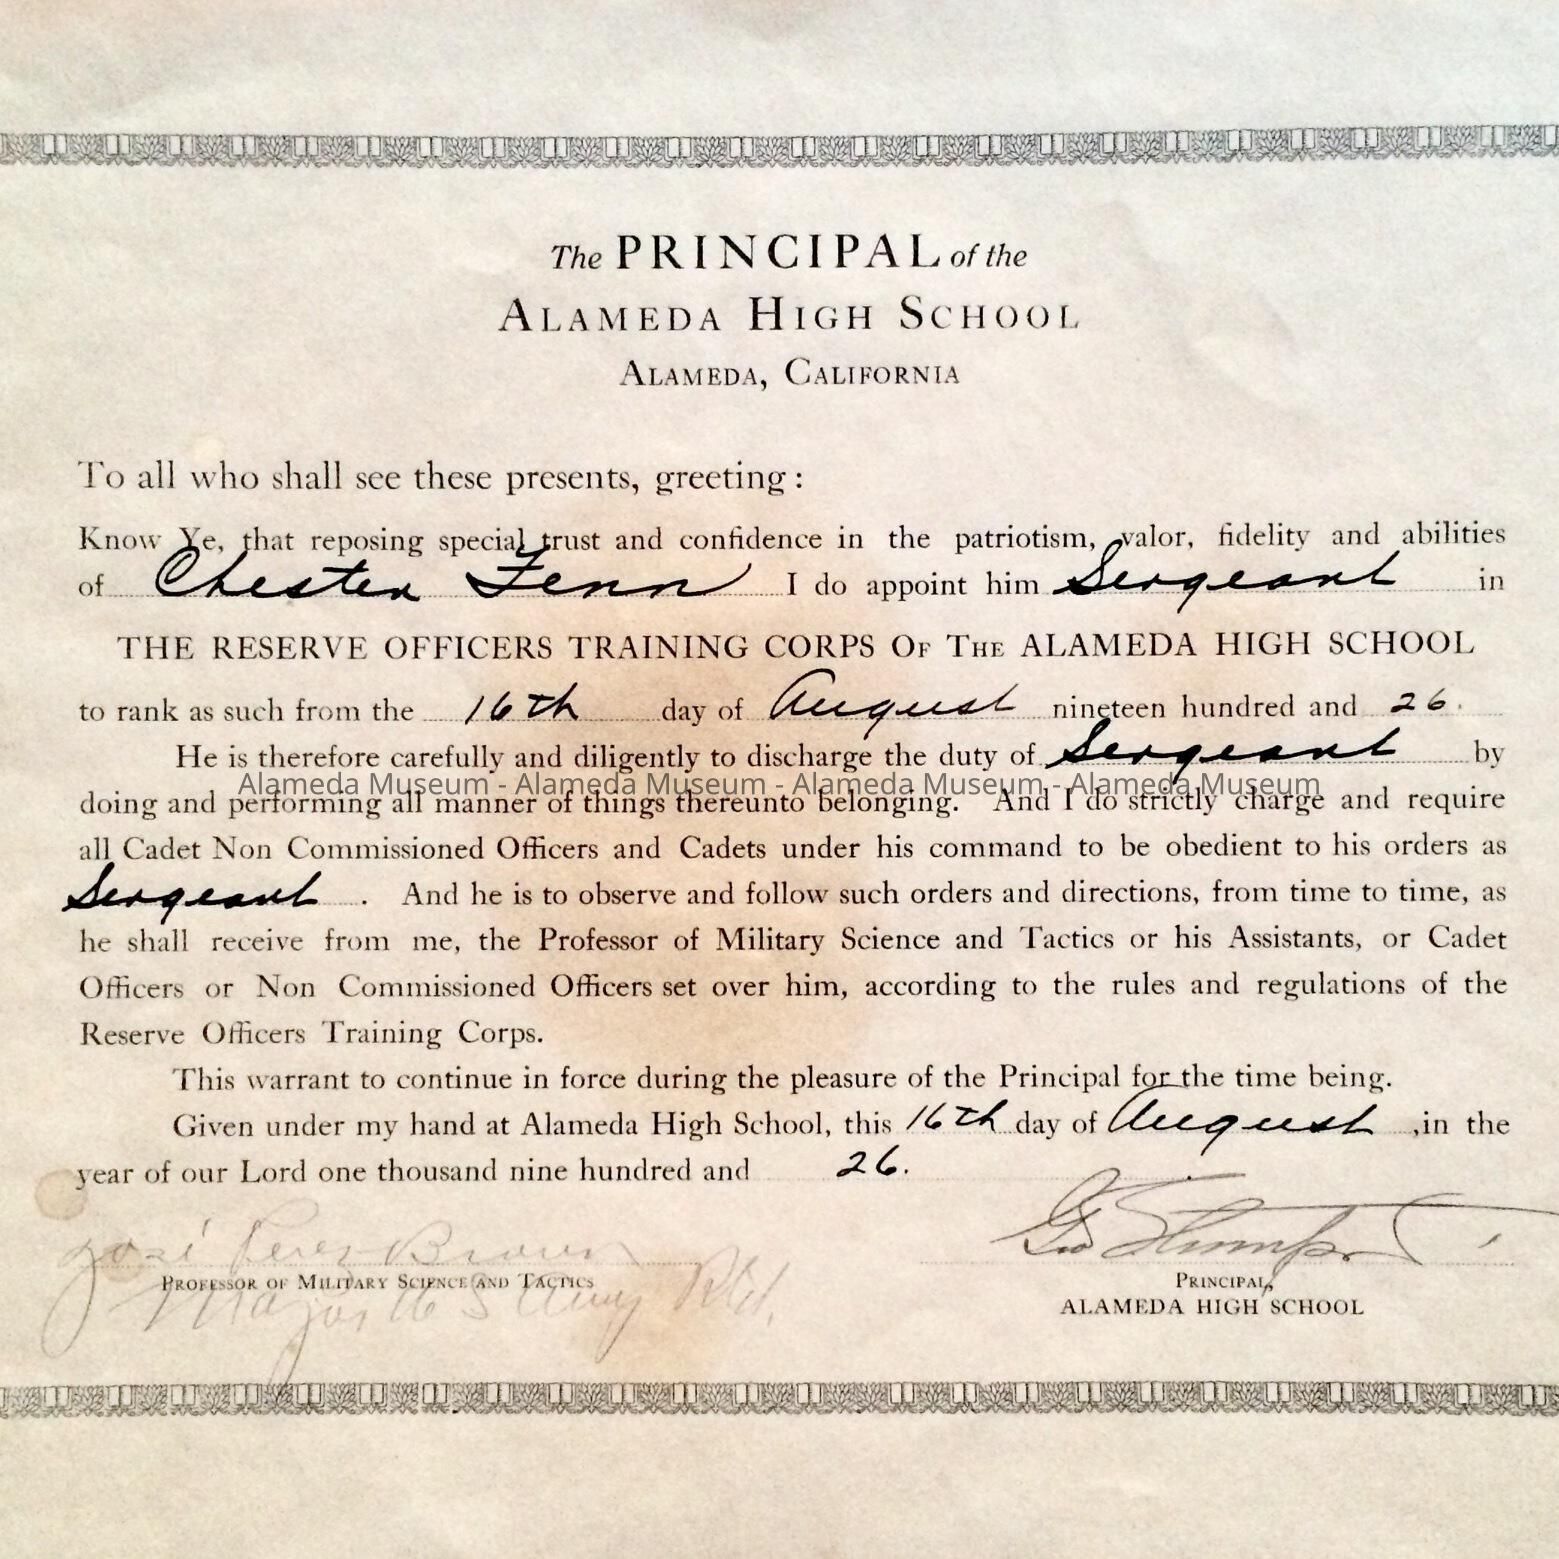 The PRINCIPAL of the
ALAMEDA HIGH SCHOOL
ALAMEDA, CALIFORNIA
To all who shall see these presents, greeting:
Know Ye, that reposing special trust and confidence in the patriotism, valor, fidelity and abilities
of Chester Fenn I do appoint him Sergeant in
THE RESERVE OFFICERS TRAINING CORPS OF THE ALAMEDA HIGH SCHOOL
to rank as such from the 16th day of August nineteen hundred and 26.
He is therefore carefully and diligently to discharge the duty of Sergeant by
Alameda Museum - Alameda Museum - Alameda Museum - Alameda Museum
doing and performing all manner of things thereunto belonging. And I do strictly charge and require
all Cadet Non Commissioned Officers and Cadets under his command to be obedient to his orders as
Sergeant. And he is to observe and follow such orders and directions, from time to time, as
he shall receive from me, the Professor of Military Science and Tactics or his Assistants, or Cadet
Officers or Non Commissioned Officers set over him, according to the rules and regulations of the
Reserve Officers Training Corps.
This warrant to continue in force during the pleasure of the Principal for the time being.
Given under my hand at Alameda High School, this 16th day of August, in the
year of our Lord one thousand nine hundred and 26.
José Perez Brown Geo Thompson
PROFESSOR OF MILITARY SCIENCE AND TACTICS PRINCIPAL,
Major U S Army Rtd. ALAMEDA HIGH SCHOOL